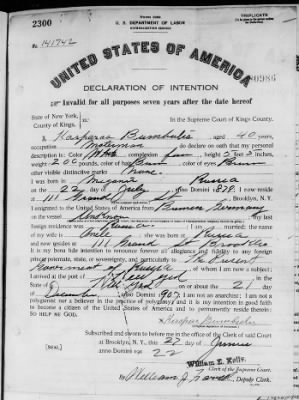 TRIPLICATE
2300
U. S. DEPARTMENT OF LABOR
NATURALIZATION SERVICE
No. 141742
UNITED STATES OF AMERICA
80986
DECLARATION OF INTENTION
Invalid for all purposes seven years after the date hereof
State of New York,
County of Kings,
In the Supreme Court of Kings County.
I, Kasparas Bumbulis aged 40 years,
occupation Motorman do declare on oath that my personal
description is: Color White complexion height 5 feet inches,
weight 200 pounds, color of hair color of eyes
other visible distinctive marks None
I was born in Russia
on the 22 day of July anno Domini 1879. I now reside
at 111 Grand St Brooklyn, N.Y.
I emigrated to the United States of America from Bremen Germany
on the vessel Unknown my last
foreign residence was Russia. I am married. The name
of my wife is she was born at Russia
and now resides at 111 Grand St Brooklyn
It is my bona fide intention to renounce forever all allegiance and fidelity to any foreign
prince, potentate, state, or sovereignty, and particularly to The Present
Government of Russia of whom I am now a subject;
I arrived at the port of New York in the
State of New York on or about the 21 day
of anno Domini 1907. I am not an anarchist; I am not a
polygamist nor a believer in the practice of polygamy; and it is my intention in good faith
to become a citizen of the United States of America and to permanently reside therein:
SO HELP ME GOD.
Subscribed and sworn to before me in the office of the Clerk of said Court
at Brooklyn, N.Y., this 27 day of June
anno Domini 1922
[SEAL]
William E. Kelly
Clerk of the Supreme Court.
By William J. Deputy Clerk.